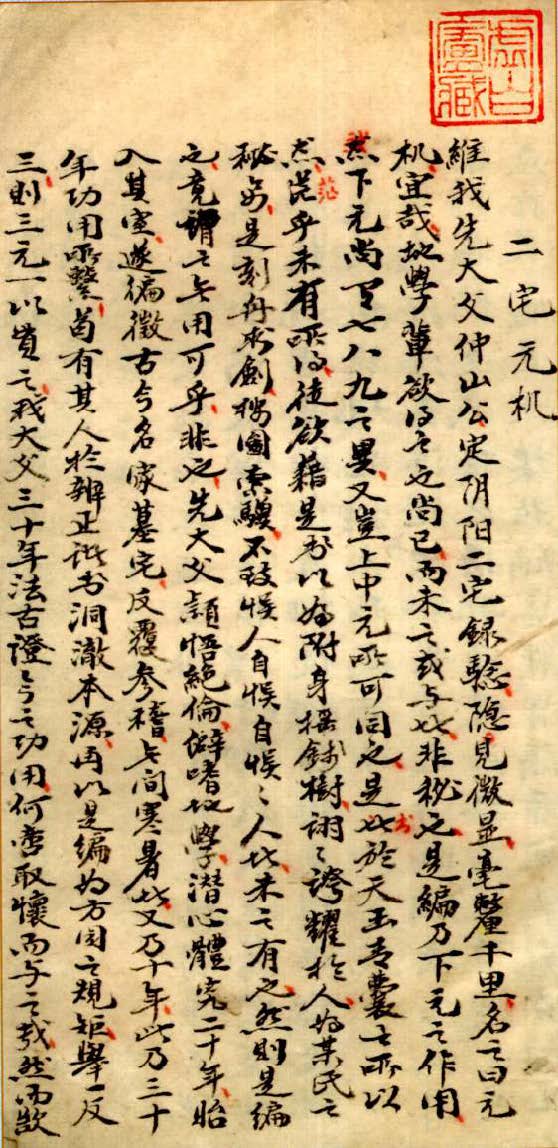 虛白廬藏
二宅元机
維我先大父仲山公定阴阳二宅録驗隐見微显毫釐千里名之曰元
机宜哉地學輩欲得之也尚已而未之或与此非秘之是編乃下元之作用
然下元尚有七八九之異又豈上中元所可同之是此於天玉青囊士所以
茫茫乎未有所得徒欲藉是书以為附身摇錢樹诩〻誇耀於人為某氏之
秘本是刻舟求劍按圖索驥不致悮人自悮自悮〻人此未之有也然則是編
之竟謂之無用可乎非也先大父颖悟絕倫僻嗜地學潜心體究二十年始
入其室遂徧徵古今名家墓宅反覆参稽無间寒暑此又乃十年此乃三十
年功用所繫苟有其人於辨正諸书洞澈本源再以是編为方圆之規矩舉一反
三則三元一以貫之我大父三十年法古證今之功用何啻取懷而与之哉然而歆